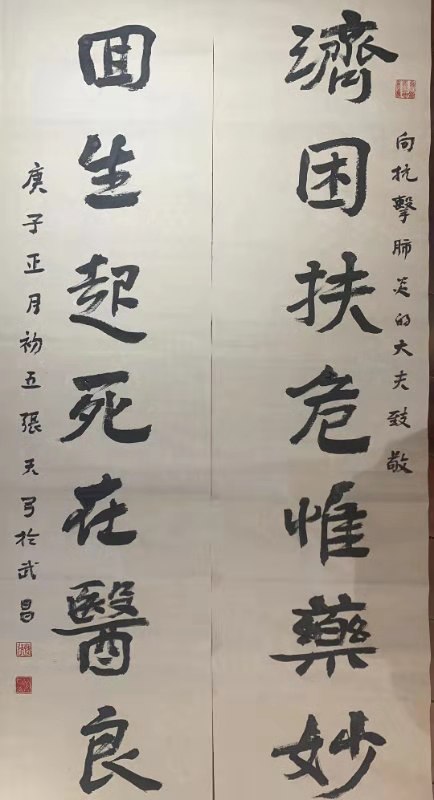 向抗擊肺炎的大夫致敬
濟困扶危惟藥妙
回生起死在醫良
庚子正月初五張天弓於武昌